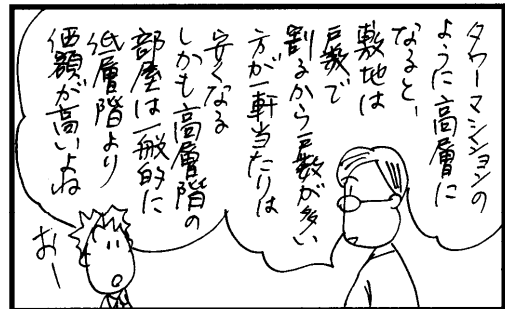 タワーマンションの
ように高層に
なると、
敷地は
戸数で
割るから戸数が多い
方が一軒当たりは
安くなる
しかも高層階の
部屋は一般的に
低層階より
価額が高いよね
おー